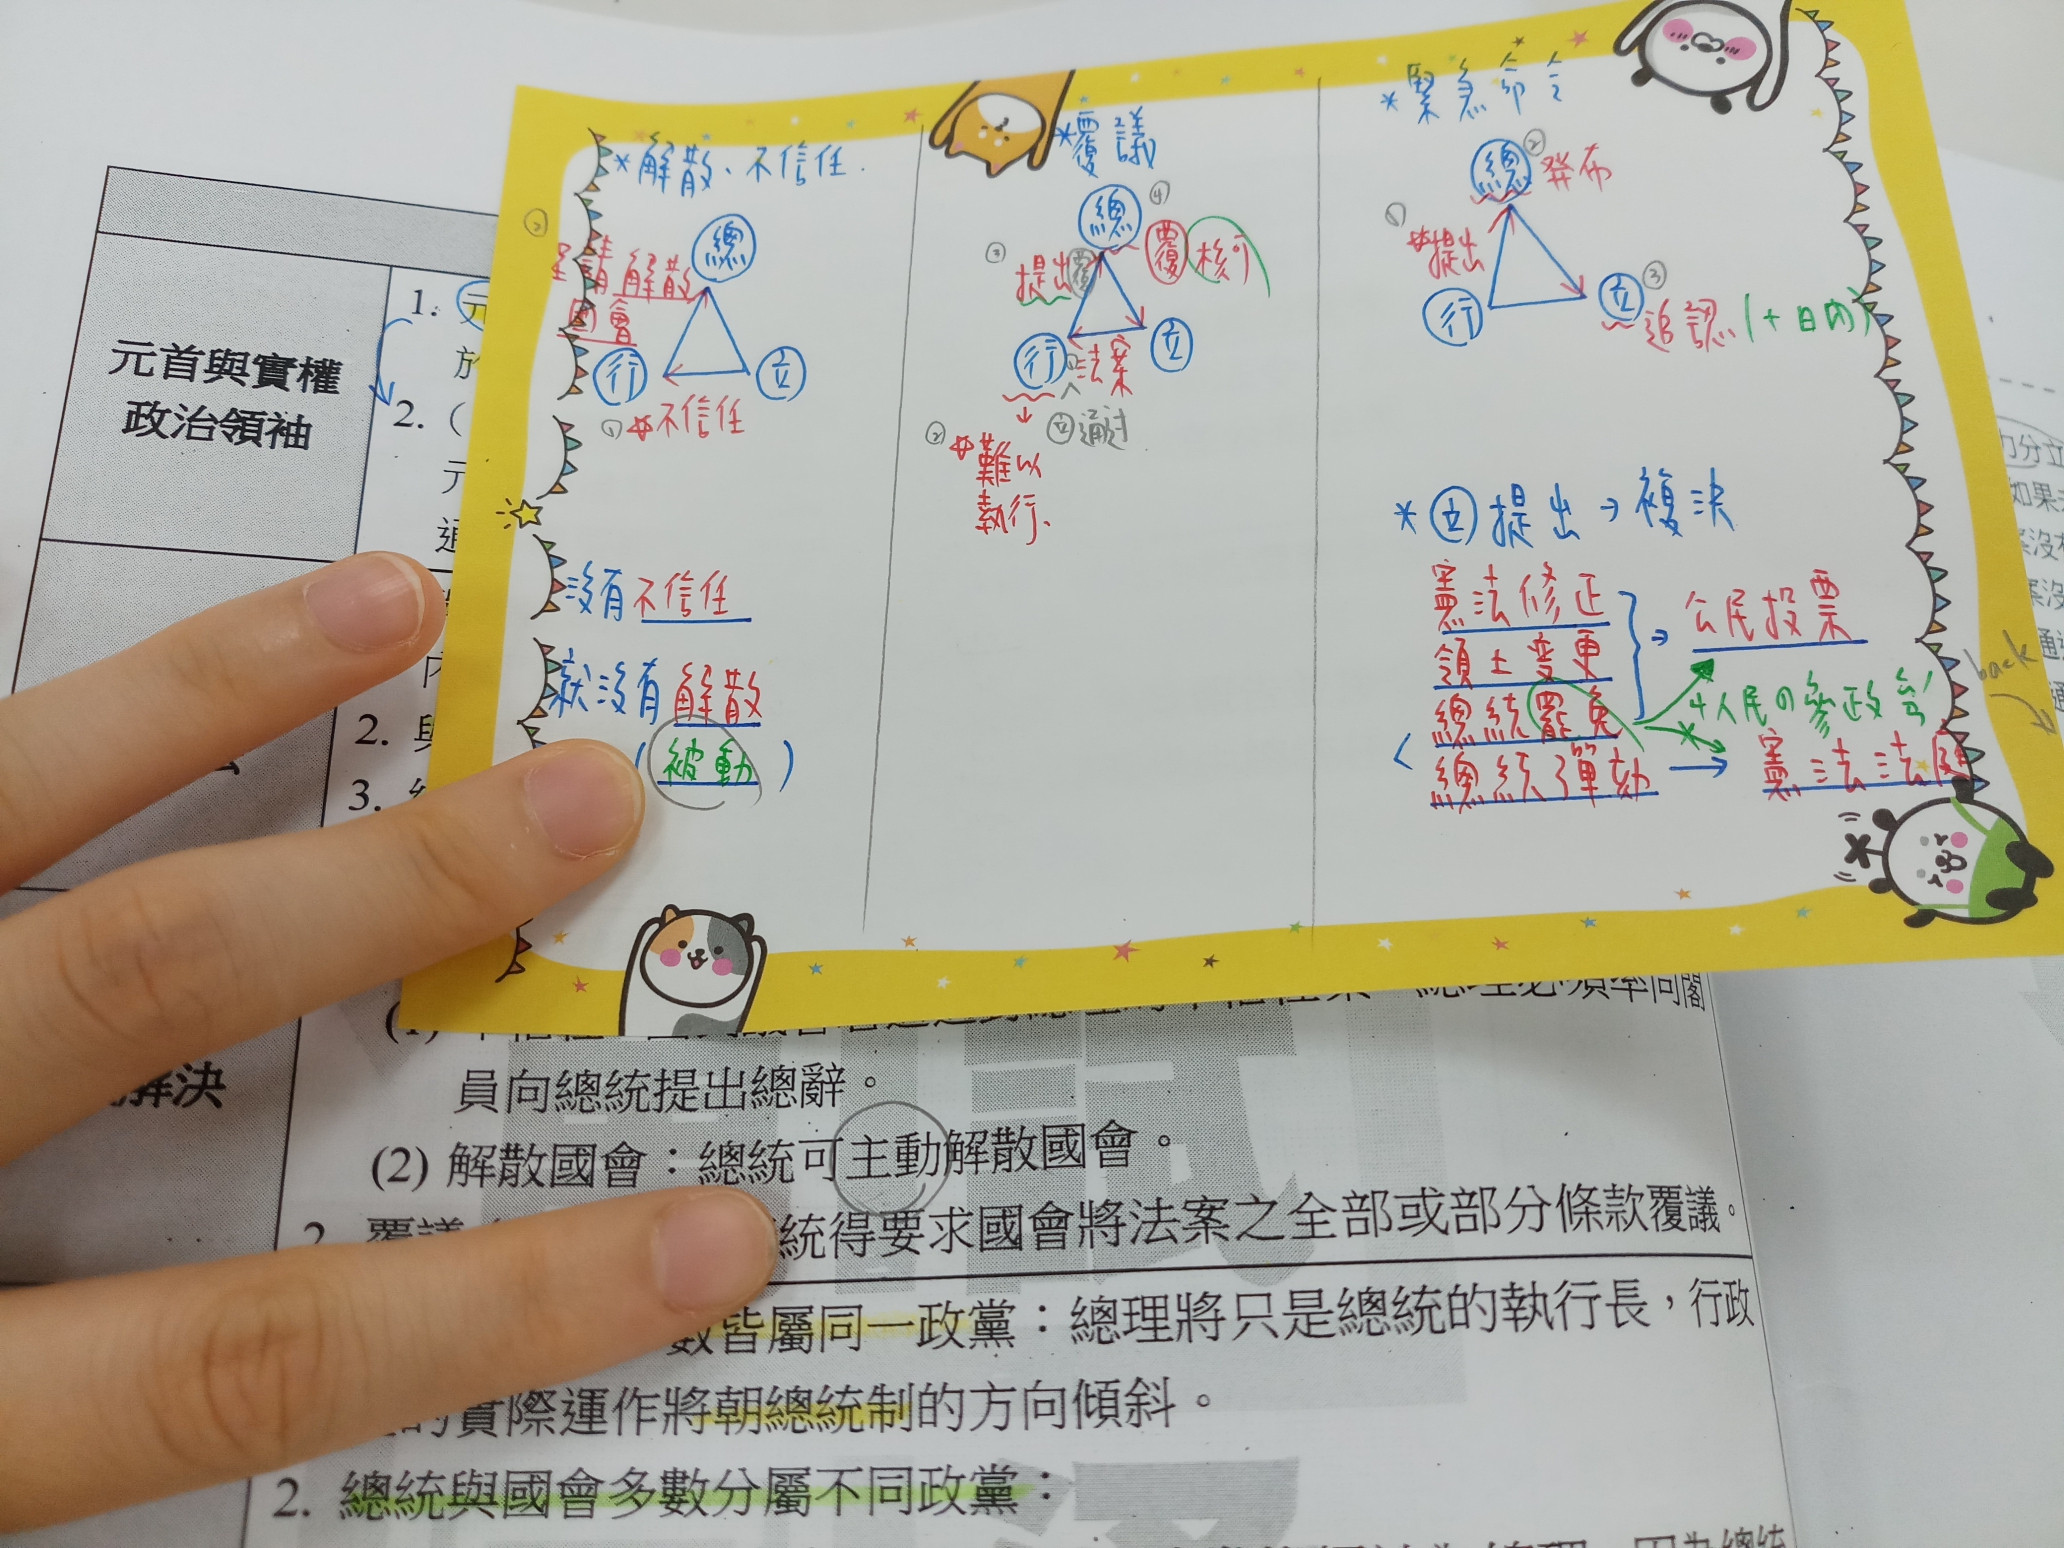 *解散、不信任.
②
呈請解散
國會
總
行
立
① *不信任
沒有不信任
就沒有解散
(被動)
*覆議
總
④
覆核可
③
提出覆
行
立
法案
立通過
② *難以
執行、
*緊急命令
總
② 發布
①
*提出
行
立
③
追認(十日內)
*立提出→複決
憲法修正
領土變更
總統罷免
→公民投票
*人民の參政
總統彈劾→憲法法庭
back
元首與實權
政治領袖
1. 元
於
2. (
元
通
2.
3.
力分立
如果
通
員向總統提出總辭。
(2) 解散國會：總統可主動解散國會。
解決
2. 覆議
統得要求國會將法案之全部或部分條款覆議。
數皆屬同一政黨：總理將只是總統的執行長，行政
的實際運作將朝總統制的方向傾斜。
2. 總統與國會多數分屬不同政黨：